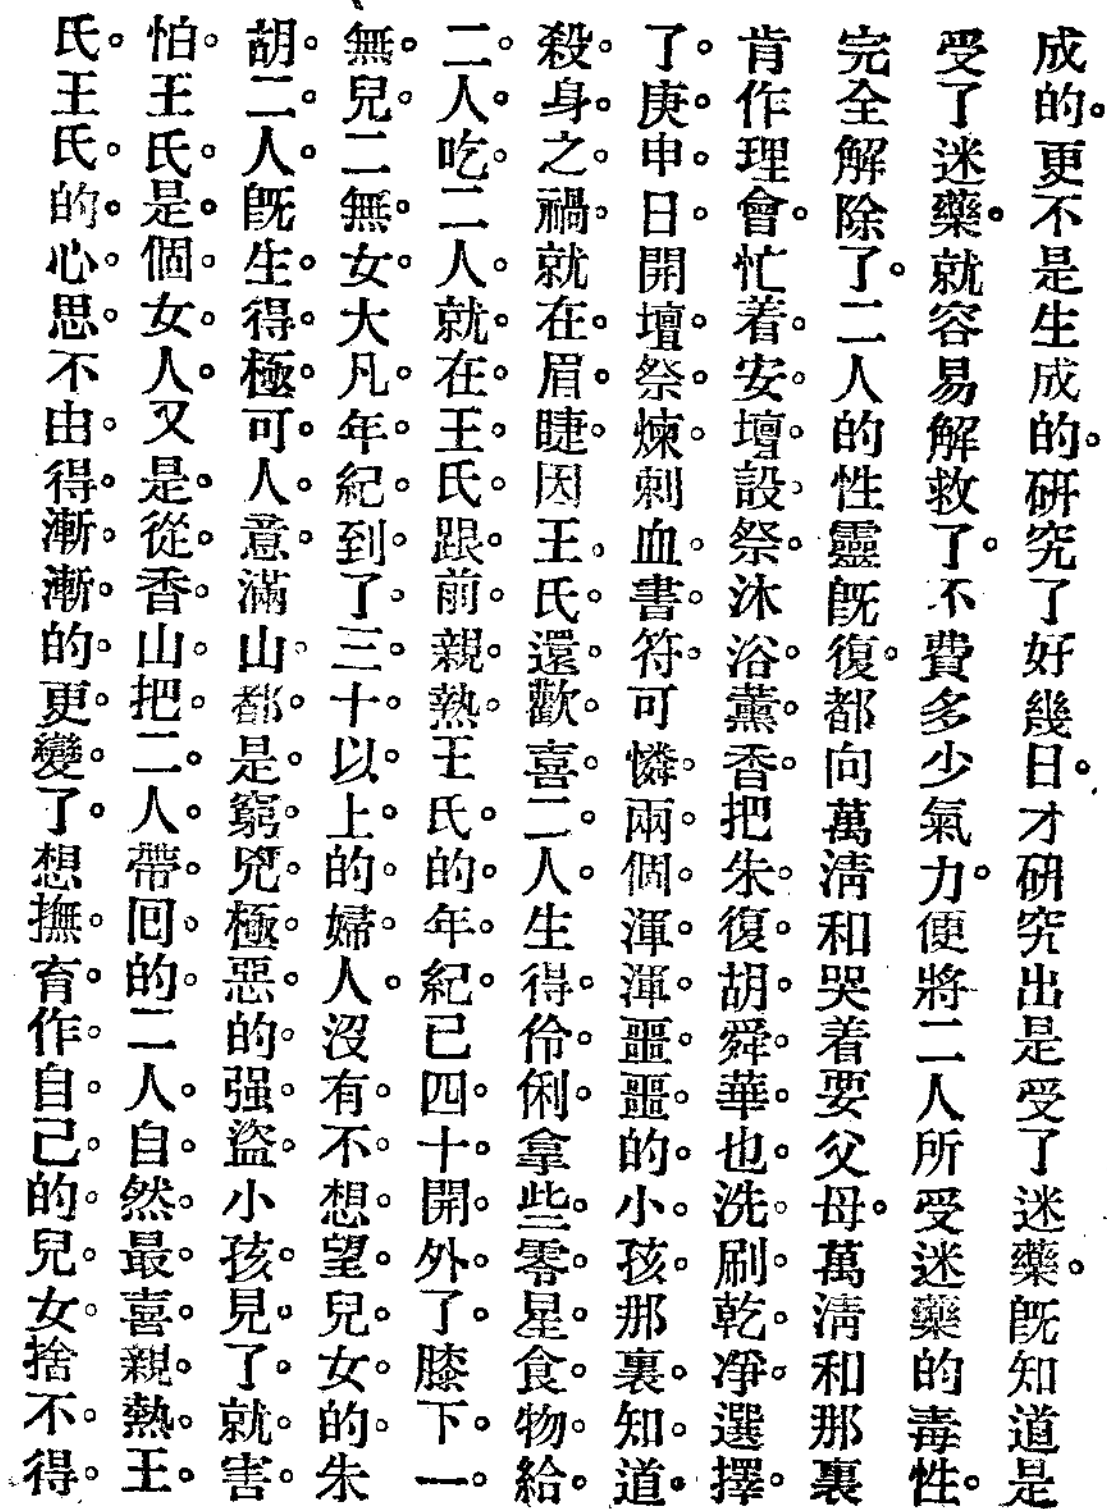 成的。更不是生成的。研究了好幾日。才研究出是受了迷藥。既知道是
受了迷藥。就容易解救了。不費多少氣力。便將二人所受迷藥的毒性。
完全解除了。二人的性靈既復。都向萬清和哭着要父母。萬清和那裏
肯作理會。忙着安壇設祭沐浴薰香把朱復胡舜華也洗刷乾淨選擇
了庚申日開壇祭煉刺血書符可憐兩個渾渾噩噩的小孩那裏知道
殺身之禍就在眉睫因王氏還歡喜二人生得伶俐拿些零星食物給
二人吃二人就在王氏跟前親熱王氏的年紀已四十開外了膝下一
無兒二無女大凡年紀到了三十以上的婦人沒有不想望兒女的朱
胡二人既生得極可人意滿山都是窮兇極惡的强盜小孩見了就害
怕王氏是個女人又是從香山把二人帶回的二人自然最喜親熱王
氏王氏的心思不由得漸漸的更變了想撫育作自己的兒女捨不得